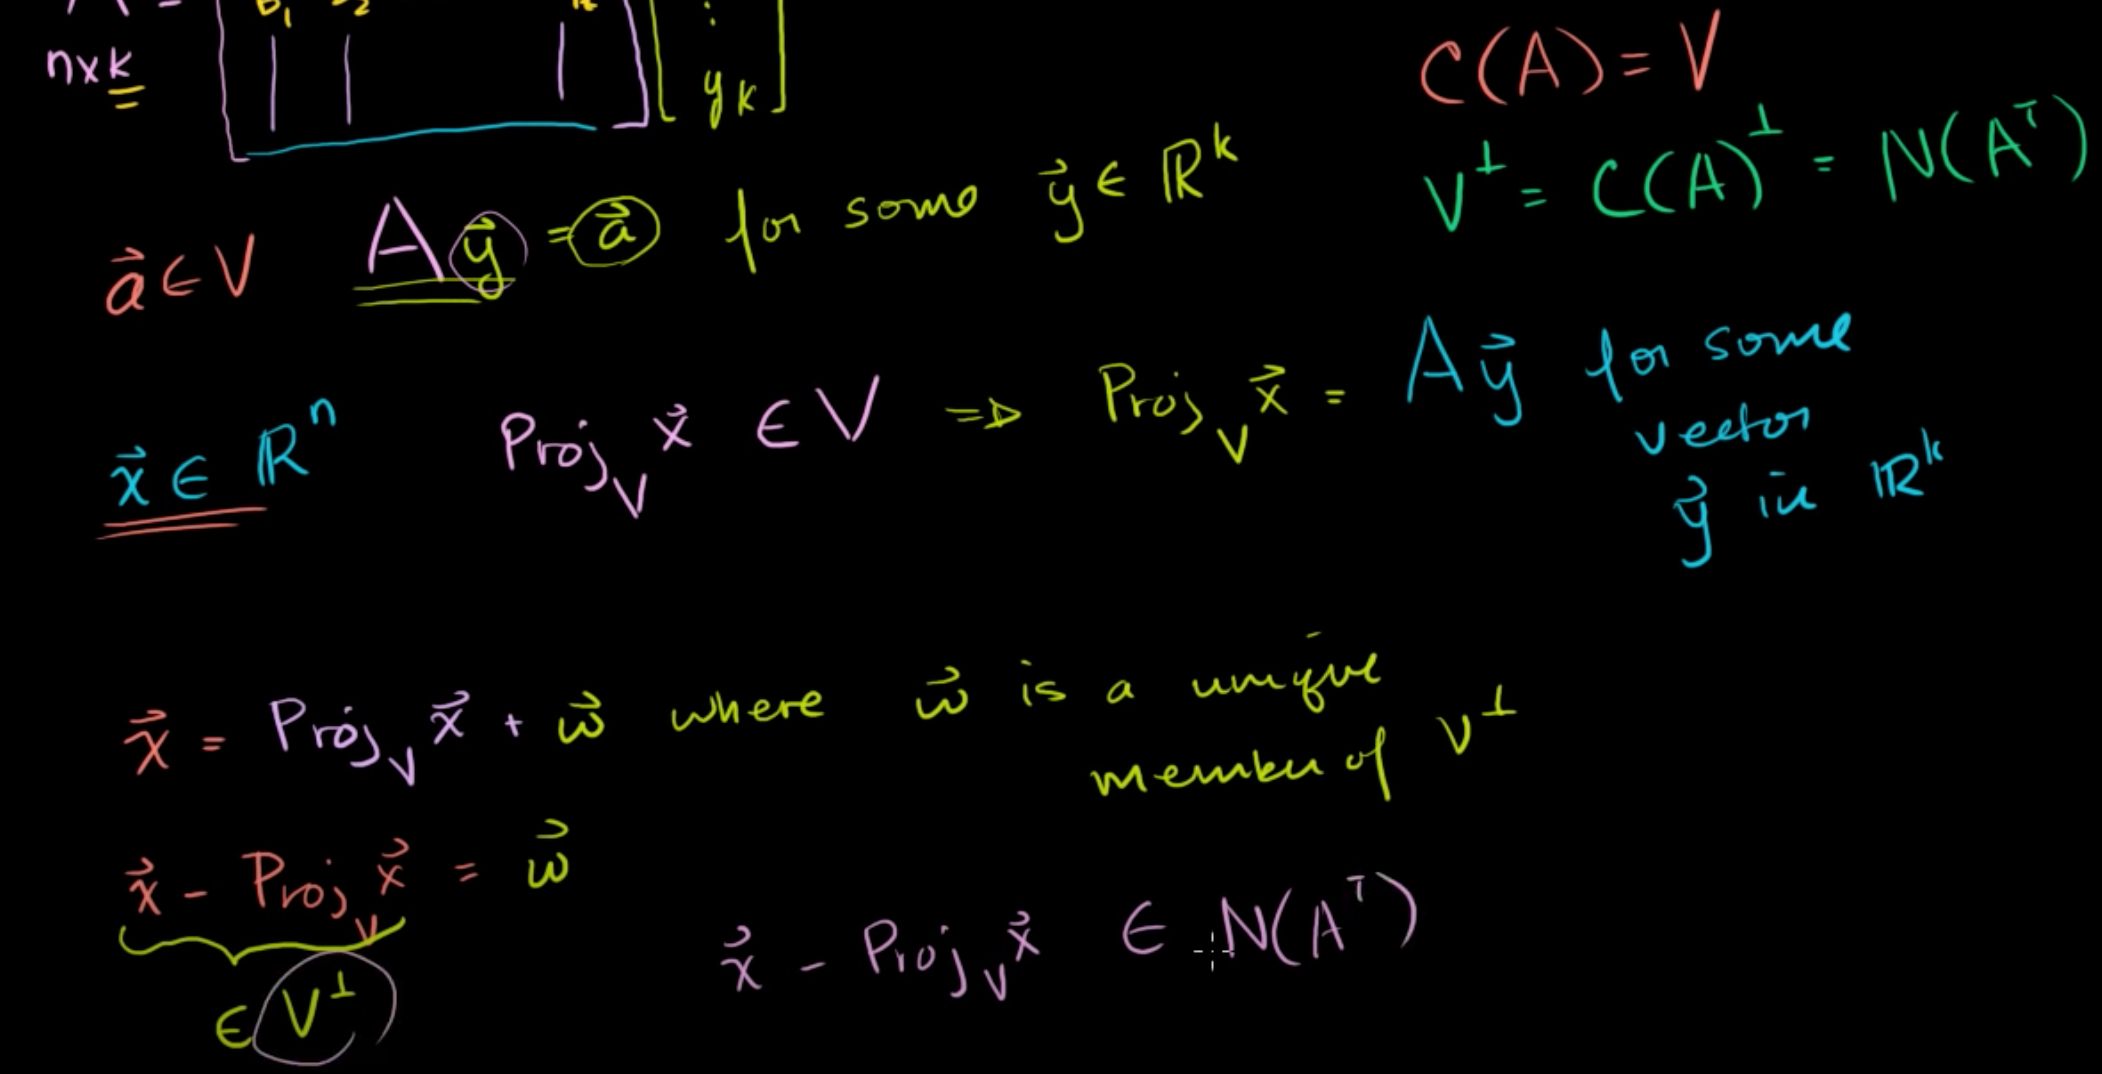 A =
b₁ b₂ k
n×k
⋮
yₖ
C(A) = V
V⊥ = C(A)⊥ = N(Aᵀ)
a⃗ ∈ V   A y⃗ = a⃗   for some y⃗ ∈ ℝᵏ
x⃗ ∈ ℝⁿ   Proj_V x⃗ ∈ V ⇒ Proj_V x⃗ = A y⃗ for some
vector
y⃗ in ℝᵏ
x⃗ = Proj_V x⃗ + w⃗ where w⃗ is a unique
member of V⊥
x⃗ - Proj_V x⃗ = w⃗
∈ V⊥
x⃗ - Proj_V x⃗ ∈ N(Aᵀ)